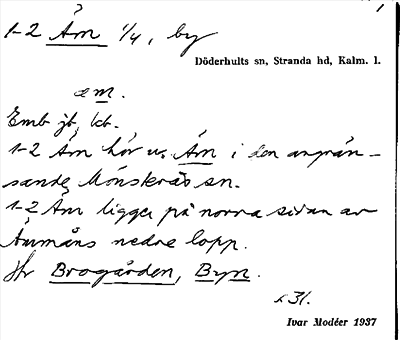 1-2 Åm 1/4, by
Döderhults sn, Stranda hd, Kalm. l.
åm.
Emb jb, kb.
1-2 Åm hör u. Åm i den angrän-
sande Mönsterås sn.
1-2 Åm ligger på norra sidan av
Åmmåns nedre lopp.
Jfr Brogården, Byn.
s. 31.
Ivar Modéer 1937